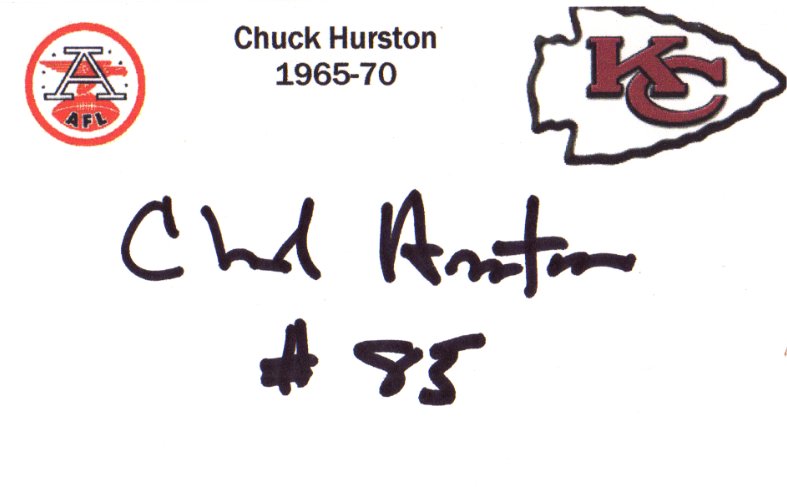 Chuck Hurston
1965-70
A
AFL
KC
Chuck Hurston
# 85